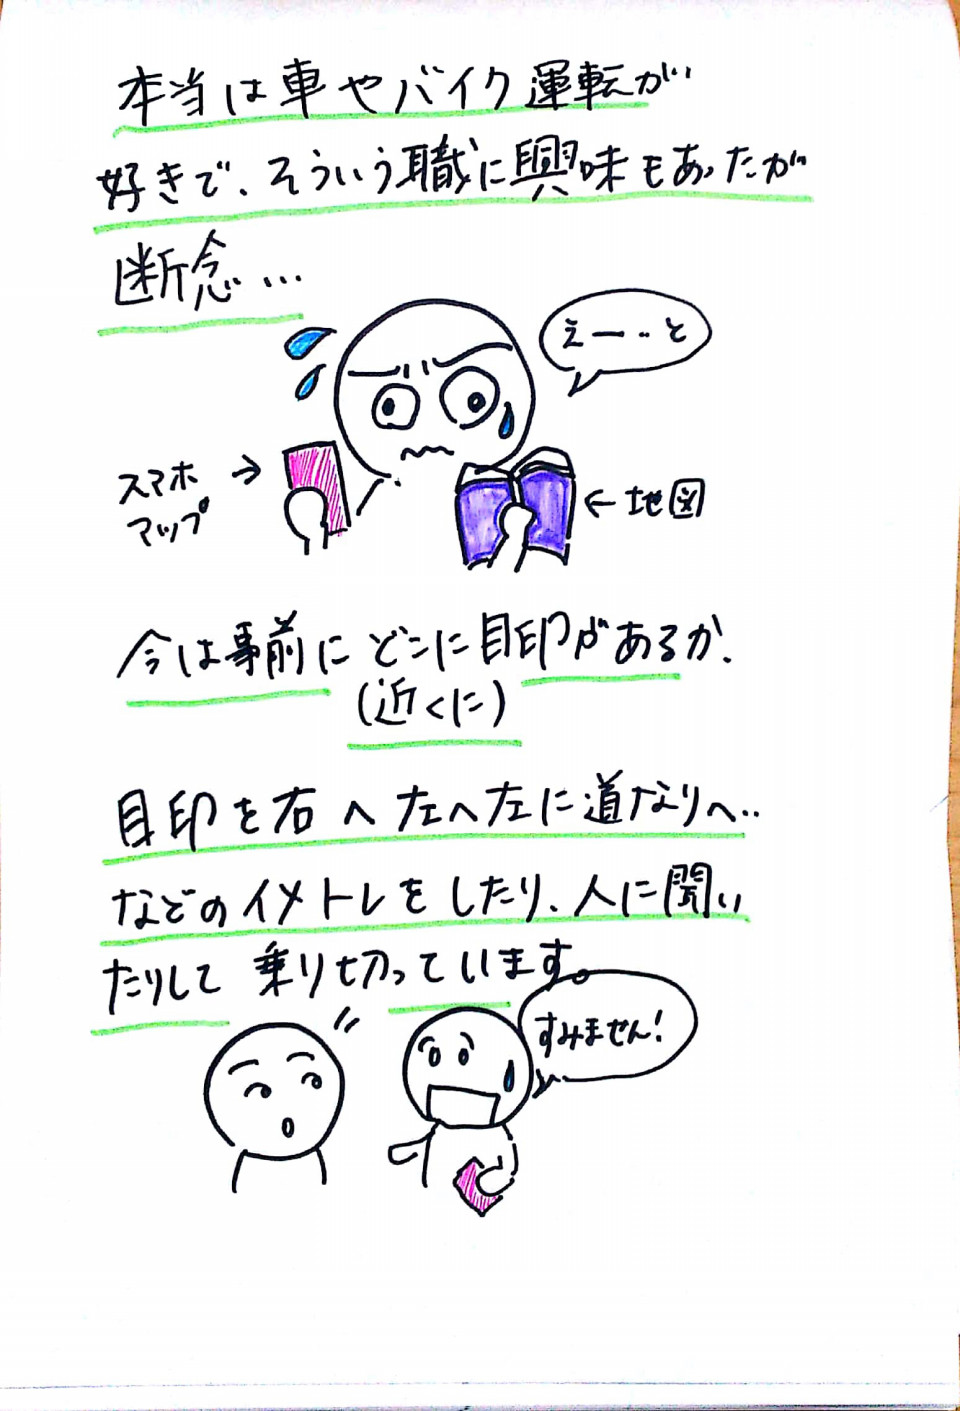 本当は車やバイク運転が
好きで、そういう職に興味もあったが
断念…
えー‥と
スマホ
マップ
→
←地図
今は事前にどこに目印があるか、
(近くに)
目印を右へ左へ左に道なりへ‥
などのイメトレをしたり、人に聞い
たりして乗り切っています。
すみません!